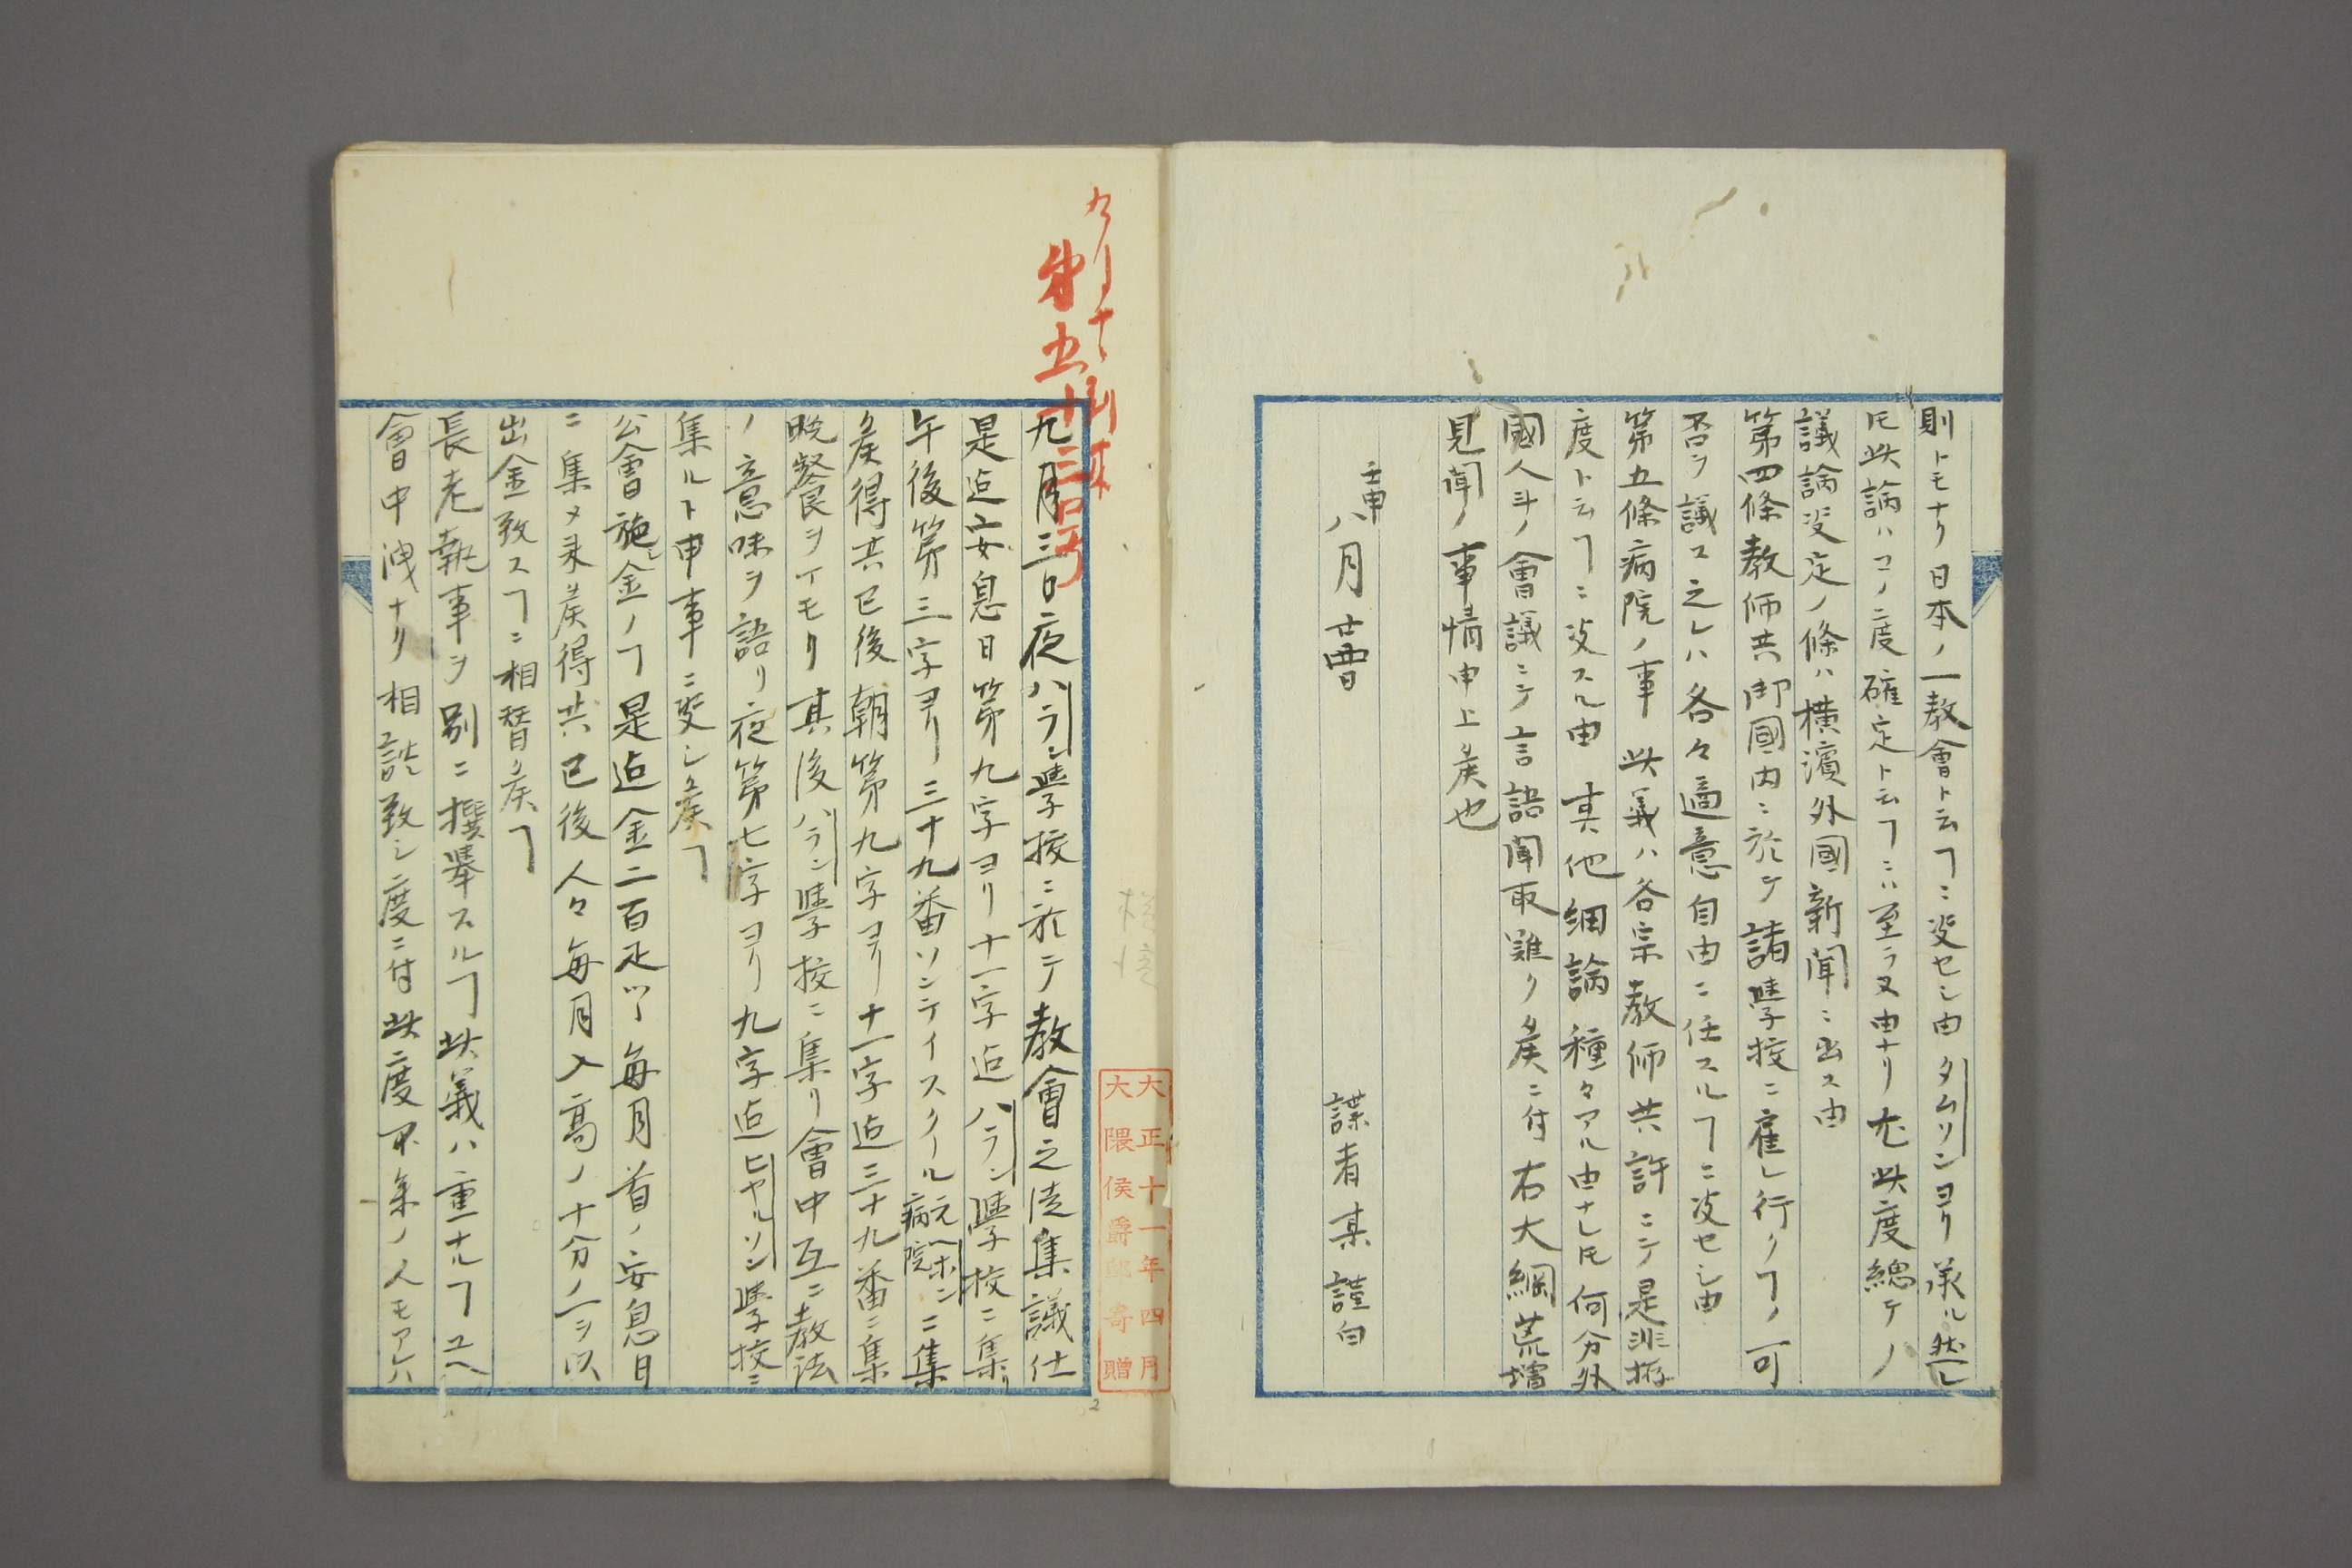 則トモナリ日本ノ一教會ト云ヿニ決セシ由タムソンヨリ承ル然レ
𪜈此論ハコノ度確定ト云ヿニハ至ラヌ由ナリ尤此度總テノ
議論決定ノ條ハ横濱外國新聞ニ出ス由
第四條教師共御國内ニ於テ諸學校ニ雇レ行クヿノ可
否ヲ議ス之レハ各々適意自由ニ任スルヿニ決セシ由
第五條病院ノ事此義ハ各宗教師共許ニテ是非拵
度ト云ヿニ決スル由其他細論種々アル由ナレ𪜈何分外
國人斗ノ會議ニテ言語聞取難ク候ニ付右大綱荒増
見聞ノ事情申上候也
壬申
八月廿四日
諜者某謹白
第五十三号
九月三日夜ハラ學校ニ於テ教會之徒集議仕
是迠安息日第九字ヨリ十一字迠ハラ學校ニ集リ
午後第三字ヨリ三十九番ソンテイスクール元ヘホン病院ニ集
候得共已後朝第九字ヨリ十一字迠三十九番ニ集
晩餐ヲイモリ其後ハラ學校ニ集リ會中互ニ教法
ノ意味ヲ語リ夜第七字ヨリ九字迠ヒヤルソン學校ニ
集ルト申事ニ変シ候ヿ
公會施金ノヿ是迠金二百疋ツヽ毎月首ノ安息日
ニ集メ来候得共已後人々毎月入高ノ十分ノ一ヲ以
出金致スヿニ相替候ヿ
長老執事ヲ別ニ撰挙スルヿ此義ハ重ナルヿユヘ
會中洩ナク相談致シ度ニ付此度不参ノ人モアレハ
大正十一年四月
大隈侯爵邸寄贈
2